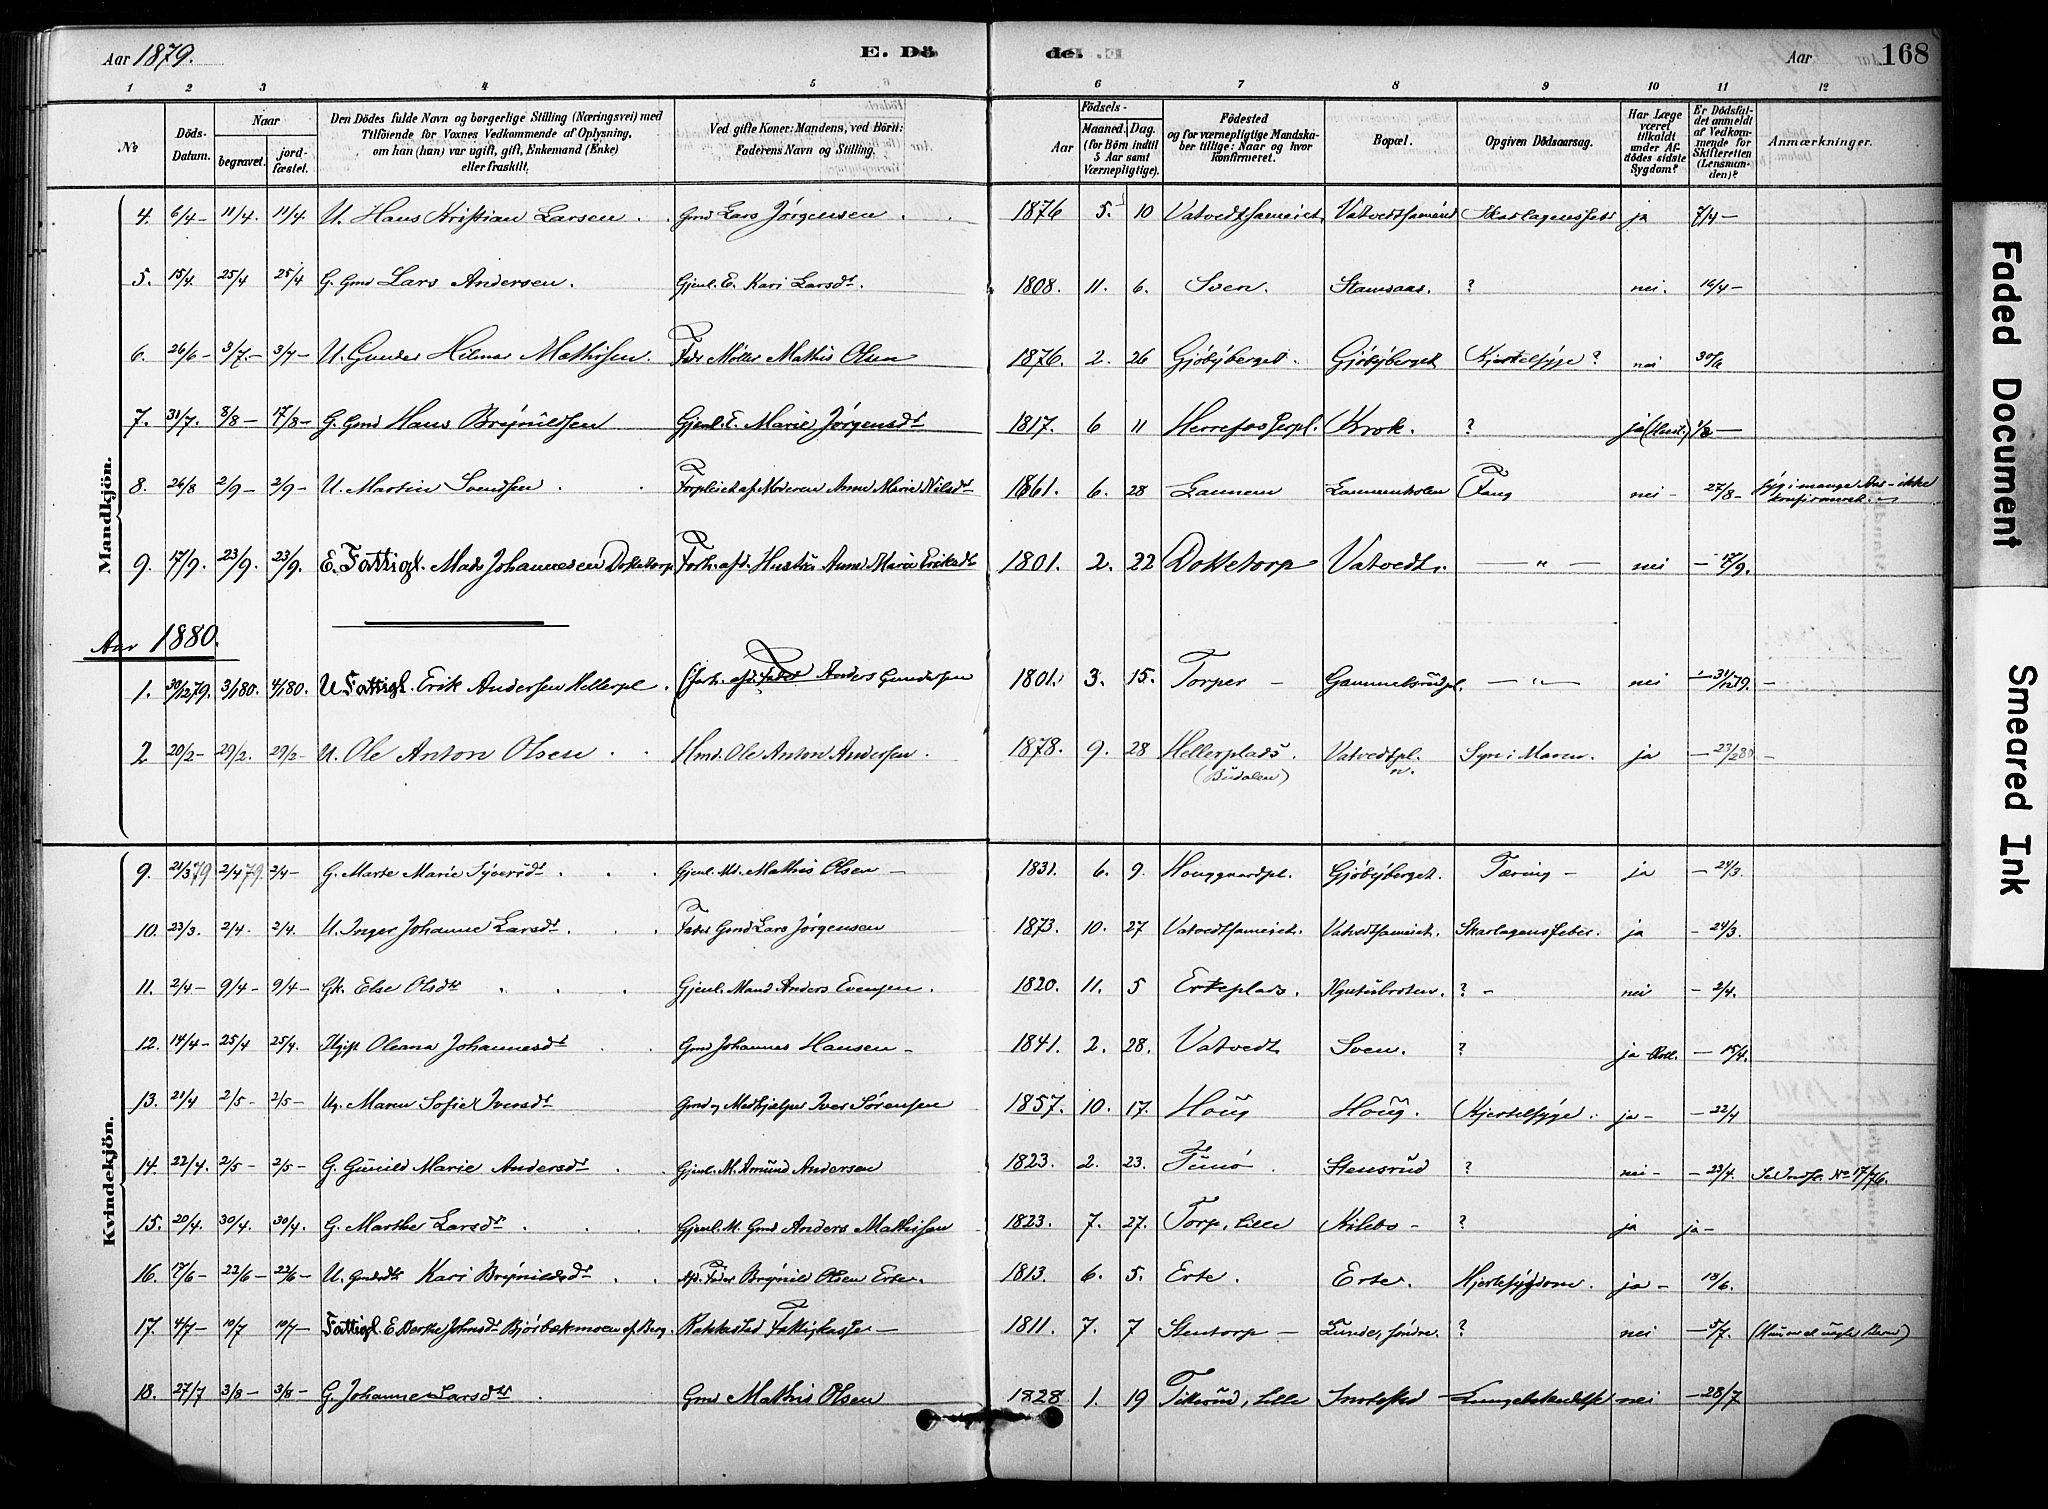 Aar 1879.
E. Dö
de.
Aar
168
1 2 3 4 5 6 7 8 9 10 11 12
No
Döds-Datum.
Naar
begravet.
jord-fæstet.
Den Dödes fulde Navn og borgerlige Stilling (Næringsvei) med
Tilföiende for Voxnes Vedkommende af Oplysning,
om han (hun) var ugift, gift, Enkemand (Enke)
eller fraskilt.
Ved gifte Koner: Mandens, ved Börn:
Faderens Navn og Stilling.
Födsels-
Aar
Maaned. Dag.
(for Börn indtil
5 Aar samt
Værnepligtige).
Födested
og for værnepligtige Mandska-
ber tillige: Naar og hvor
konfirmeret.
Bopæl.
Opgiven Dödsaarsag.
Har Læge
været
tilkaldt
under Af-
dödes sidste
Sygdom?
Er Dödsfal-
det anmeldt
af Vedkom-
mende for
Skifteretten
(Lensman-
den)?
Anmærkninger.
Mandkjön.
4. 6/4- 11/4. 11/4 U. Hans Kristian Larsen. Gmd Lars Jørgensen 1876 5. 10 Vatvedtsameiet, Vatvedtsameiet Skarlagensfeber ja 7/4-
5. 15/4. 25/4 25/4 G. Gmd Lars Andersen. Gjenl. E. Kari Larsdr. 1808. 11. 6. Sven. Stamsaas. ? nei. 16/4-
6. 26/6- 3/7- 3/7- U. Gunder Hilmar Mathisen. Fader Møller Mathis Olsen 1876. 2. 26 Gjøbyberget. Gjøbyberget Kjertelsyge? nei 30/6
7. 31/7. 8/8- 17/8- G. Gmd Hans Brynildsen Gjenl. E. Marie Jørgensdr 1817. 6 11 Herrefosserpl. Krok. ? ja 1/8-
8. 26/8 2/9- 2/9- U. Martin Svendsen. Forpleiet af Moderen Anne Marie Nilsdr 1861. 6. 28 Lannem Lannemholen Tæring nei- 27/8- syg i mange Aar - ikke
konfirmeret.
9. 17/9. 23/9. 23/9. E. Fattigl. Mads Johannesen Doktetorp Forh. afd. Hustru Anne Marie Eriksdr 1801. 2. 22 Doktetorp Vatvedt. -"- nei -17/9.
Aar 1880.
1. 30/12 79. 3/1 80. 4/1 80. U Fattigl. Erik Andersen Hellerpl. Forh. afd. Fader Anders Gundersen 1801. 3. 15. Torper- Gammelsrudpl. -"- nei -31/12 79.-
2 20/2- 29/2. 29/2- U. Ole Anton Olsen. Hmd. Ole Anton Andersen. 1878. 9. 28 Hellerplads. Vatvedtpl. Syre i Maven. ja -23/2 80-
(Budalen) n.
Kvindekjön.
9. 21/3 79 2/4 79. 2/4- G. Marte Marie Syversdr. Gjenl. Md. Mathis Olsen- 1831. 6. 9. Houggaardpl. Gjøbyberget. Tæring- ja -24/3.
10. 23/3. 2/4. 2/4. U. Inger Johanne Larsdr. Fader Gmd Lars Jørgensen 1873. 10. 27 Vatvedtsameiet. Vatvedtsameiet. Skarlagensfeber. ja -24/3.
11. 2/4- 9/4- 9/4- Gk. Else Olsdtr " Gjenl. Mand Anders Evensen. 1820. 11. 5 Erteplads. ?- nei -2/4.
12. 14/4- 25/4 25/4. Ugift Oleana Johannesdr Gmd Johannes Hansen- 1841. 2. 28. Vatvedt Sven. ? ja -15/4.
13. 21/4 2/5- 2/5- Ug. Maren Sofie Iversdr Gmd og Medhjælper Iver Sørensen 1857. 10. 17. Houg Houg. Kjertelsyge. ja- -22/4
14. 22/4. 2/5- 2/5- G. Gunild Marie Andersdr. Gjenl. M. Amund Andersen 1823. 2. 23. Stensrud ? nei- -23/4. No 17/76.
15. 20/4. 30/4. 30/4. G. Marthe Larsdr. Gjenl. M. Gmd Anders Mathisen 1823. 7. 27. Torp, Lille Kilebo- ? ja ja-
16. 17/6- 22/6- 22/6- U. Gmdsdtr Kari Brynildsdr. Afd. Fader Brynild Olsen Erte. 1813. 6. 5. Erte. Erte. Hjertesygdom. ja- 18/6.
17. 4/7- 10/7 10/7- Fattigl. E Berthe Johnsdr Bjørbækmoen af Berg. Rakkestad Fattigkasse- 1811. 7. 7 Stentorp- Lunde, søndre. ? nei -5/7.
18. 27/7 3/8- 3/8- G. Johanne Larsdtr. Gmd Mathis Olsen 1828 1. 19 Tikerud, Lille Lungebetændelse nei -28/7
Faded Document
Smeared Ink